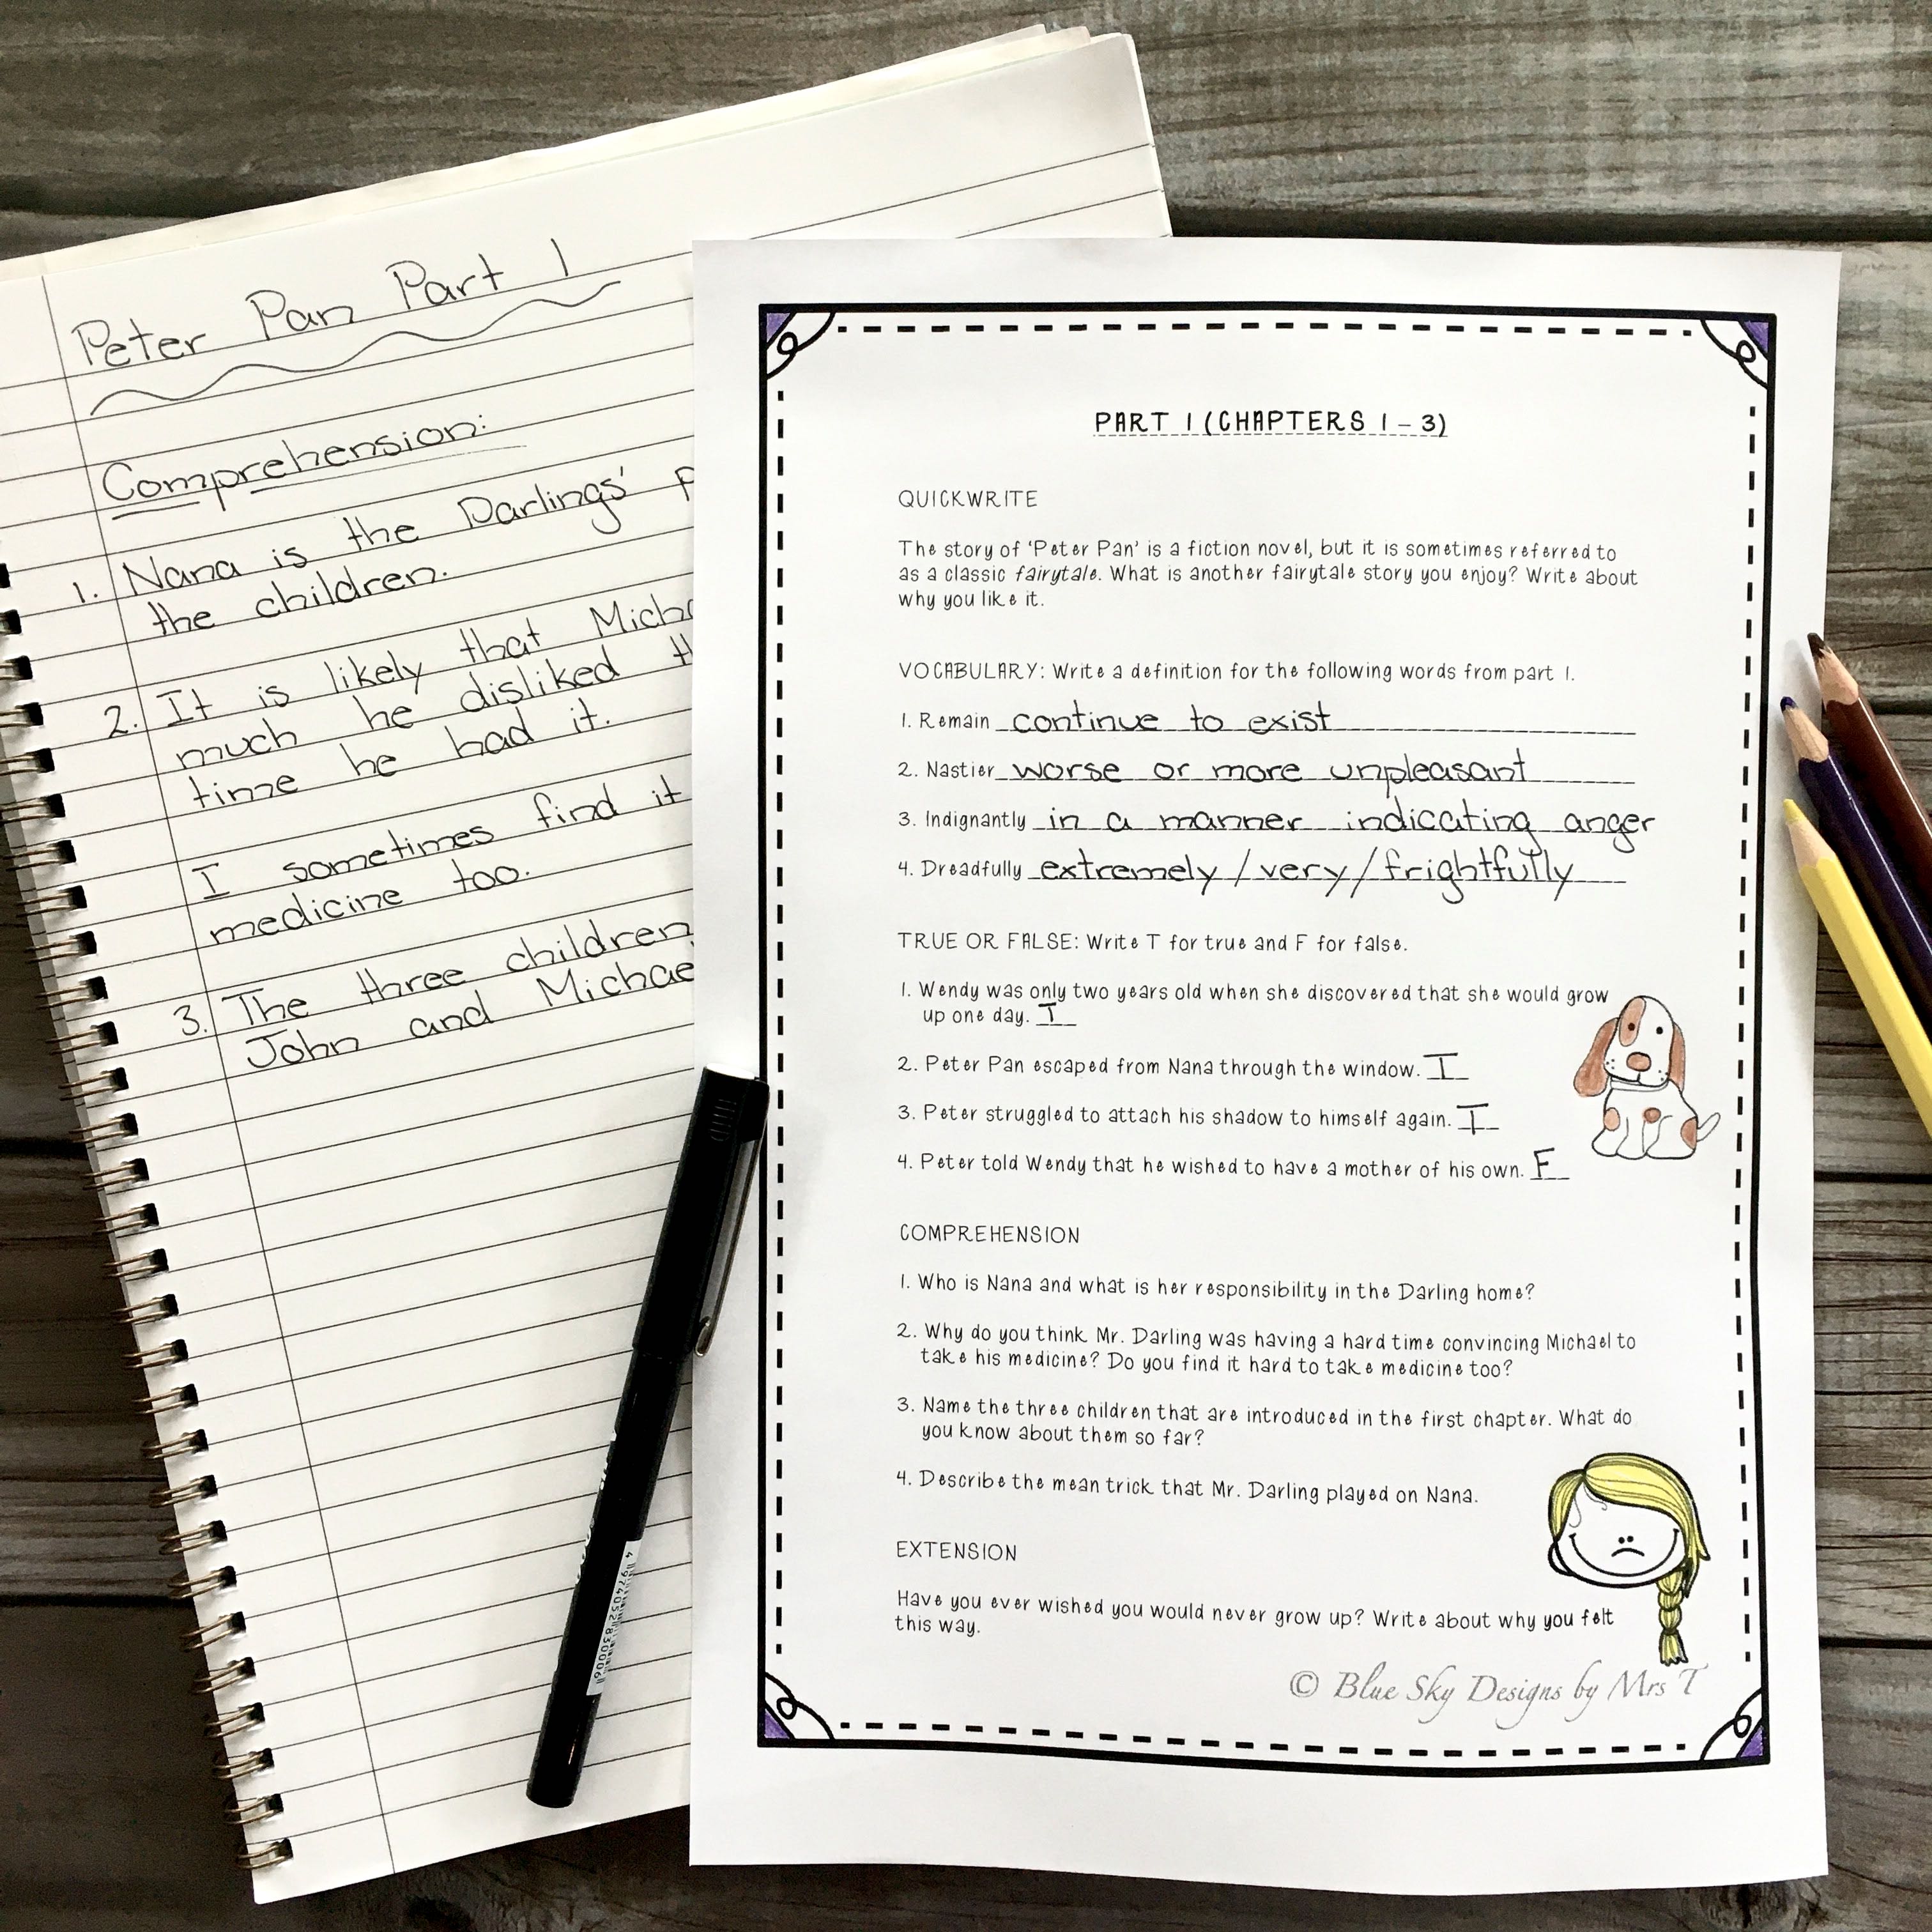 Peter Pan Part 1
Comprehension:
1. Nana is the Darlings'
the children.
2. It is likely that
much he disliked
time he had it.
I sometimes find it
medicine too.
3. The three children
John and
PART 1 (CHAPTERS 1 – 3)
QUICKWRITE
The story of ‘Peter Pan’ is a fiction novel, but it is sometimes referred to
as a classic fairytale. What is another fairytale story you enjoy? Write about
why you like it.
VOCABULARY: Write a definition for the following words from part 1.
1. Remain continue to exist
2. Nastier worse or more unpleasant
3. Indignantly in a manner indicating anger
4. Dreadfully extremely / very / frightfully
TRUE OR FALSE: Write T for true and F for false.
1. Wendy was only two years old when she discovered that she would grow
up one day. T
2. Peter Pan escaped from Nana through the window. T
3. Peter struggled to attach his shadow to himself again. T
4. Peter told Wendy that he wished to have a mother of his own. F
COMPREHENSION
1. Who is Nana and what is her responsibility in the Darling home?
2. Why do you think Mr. Darling was having a hard time convincing Michael to
take his medicine? Do you find it hard to take medicine too?
3. Name the three children that are introduced in the first chapter. What do
you know about them so far?
4. Describe the mean trick that Mr. Darling played on Nana.
EXTENSION
Have you ever wished you would never grow up? Write about why you felt
this way.
© Blue Sky Designs by Mrs T